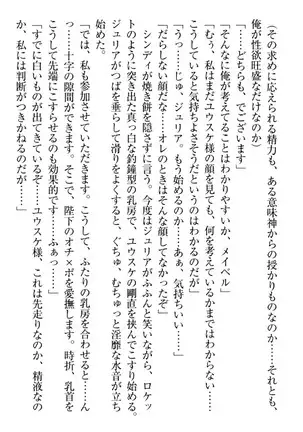 （その求めに応えられる精力も、ある意味神からの授かりものなのか……それとも、
俺が性欲旺盛なだけなのか）
「……どちらも、でございます」
「そんなに俺が考えてることはわかりやすいか、メイベル」
「むう、私はまだユウスケ様の顔を見ても、何を考えているかまではわからないのだ
が……とても気持ちよさそうだというのはわかるのだが」
「うっ……じゅ、ジュリア。……あぁ、気持ちいい……」
「だらしない顔だな……オレのときはそんな顔してなかったぞ」
シンディが焼き餅を隠さずに言う。今度はジュリアがふふんと笑いながら、ロケッ
トのように突き出た真っ白な釣鐘型の乳房で、ユウスケの剛直を挟んでこすり始める。
ジュリアがつばを垂らして滑りをよくすると、ぐちゅ、むちゅっと淫靡な水音が立ち
始めた。
「では、私も参加させていただきます。こうして、ふたりの乳房を合わせると……ん
っ……十字の隙間ができます。そこで、陛下のオチ×ボを愛撫します。時折、乳首を
こうして先端にこすらせるのも効果的です……ふぁっ……」
「すでに白いものが出てきているぞ……ユウスケ様、これは先走りなのか、精液なの
か、私には判断がつきかねるのだが……」